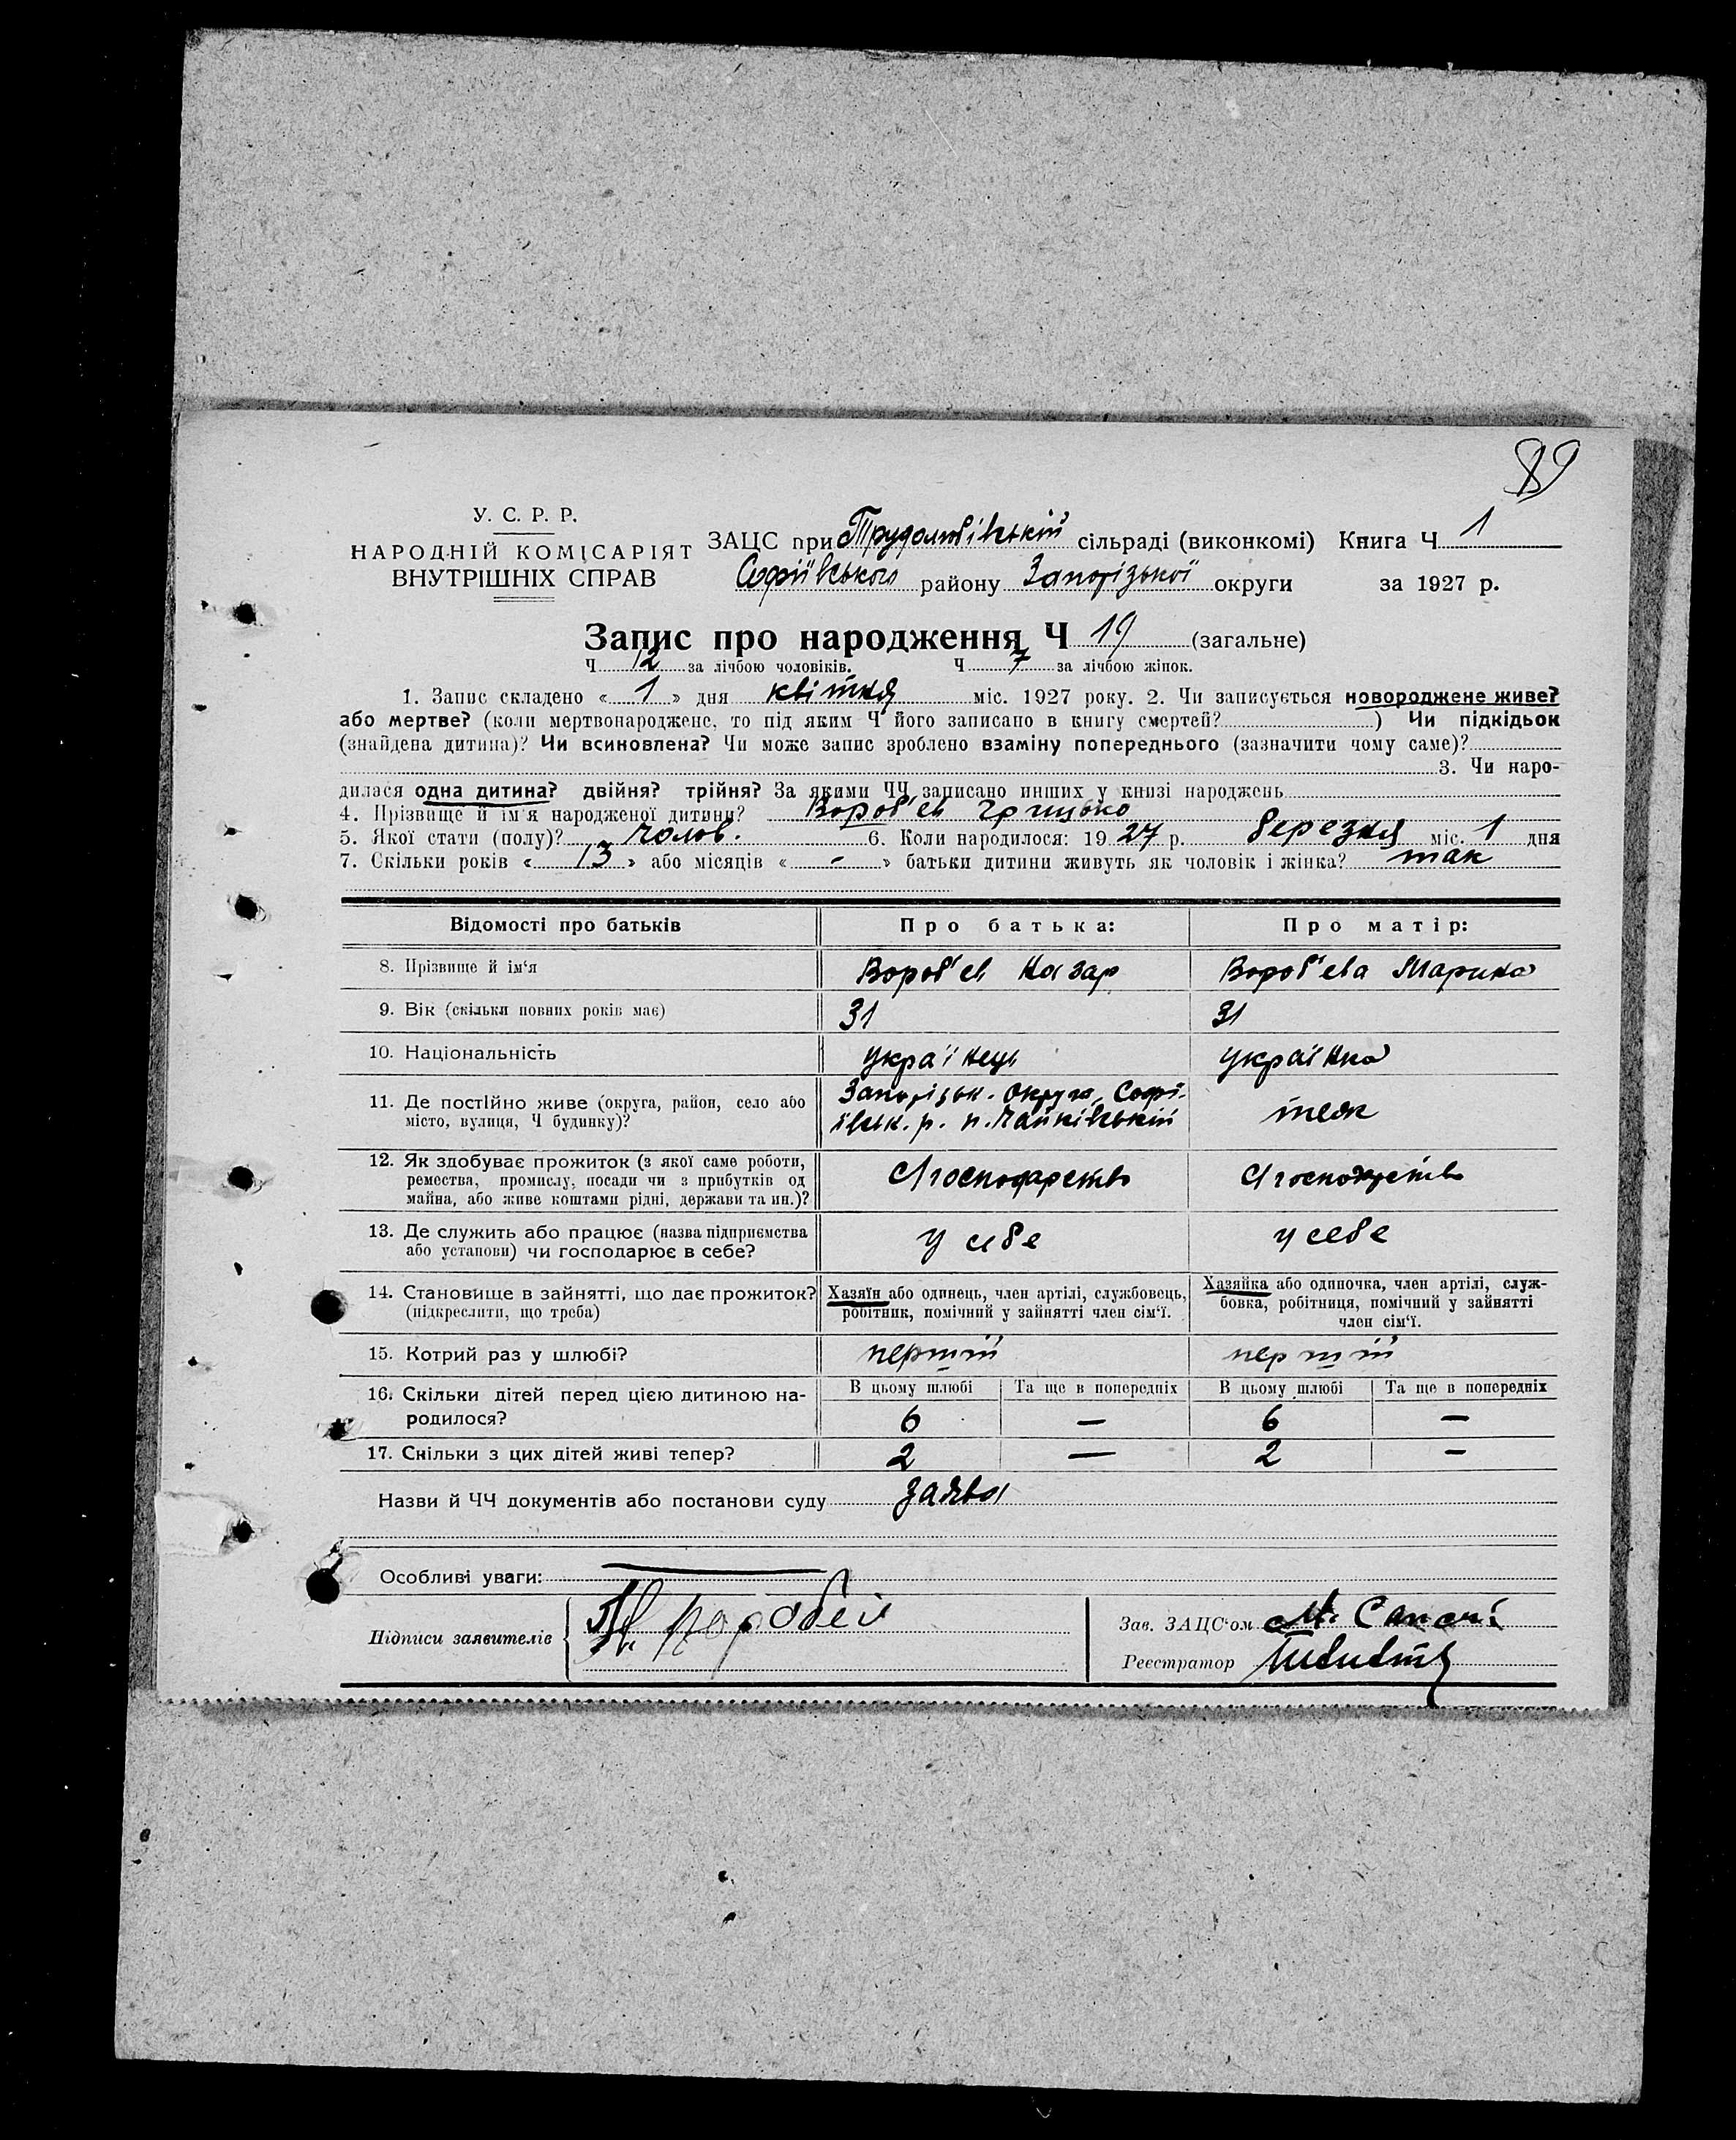 89
У. С. Р. Р.
НАРОДНІЙ КОМІСАРІЯТ
ВНУТРІШНІХ СПРАВ
ЗАЦС при Трудолюбівській сільраді (виконкомі) Книга Ч 1
Софіївського району Запорізької округи за 1927 р.
Запис про народження Ч 19 (загальне)
Ч 12 за лічбою чоловіків. Ч 7 за лічбою жінок.
1. Запис складено « 1 » дня квітня міс. 1927 року. 2. Чи записується новороджене живе?
або мертве? (коли мертвонароджене, то під яким Ч його записано в книгу смертей? ) Чи підкідьок
(знайдена дитина)? Чи всиновлена? Чи може запис зроблено взаміну попереднього (зазначити чому саме)?
3. Чи наро-
дилася одна дитина? двійня? трійня? За якими ЧЧ записано инших у книзі народжень
4. Прізвище й ім'я народженої дитини? Вороб'ев Грицько
5. Якої стати (полу)? чолов. 6. Коли народилося: 19 27 р. березня міс. 1 дня
7. Скільки років « 13 » або місяців « - » батьки дитини живуть як чоловік і жінка? так
Відомості про батьків Про батька: Про матір:
8. Прізвище й ім'я Вороб'ев Назар Вороб'ева Марина
9. Вік (скільки повних років має) 31 31
10. Національність Українець Українка
11. Де постійно живе (округа, район, село або
місто, вулиця, Ч будинку)?
Запорізьк. округа, Софі-
ївськ. р. п. Чайківський
теж
12. Як здобуває прожиток (з якої саме роботи,
ремества, промислу, посади чи з прибутків од
майна, або живе коштами рідні, держави та ин.)?
С господарство С господарство
13. Де служить або працює (назва підприємства
або установи) чи господарює в себе?
у себе у себе
14. Становище в зайнятті, що дає прожиток?
(підкреслити, що треба)
Хазяїн або одинець, член артілі, службовець,
робітник, помічний у зайнятті член сім'ї.
Хазяйка або одиночка, член артілі, служ-
бовка, робітниця, помічний у зайнятті
член сім'ї.
15. Котрий раз у шлюбі? перший перший
16. Скільки дітей перед цією дитиною на-
родилося?
В цьому шлюбі Та ще в попередніх В цьому шлюбі Та ще в попередніх
6 — 6 —
17. Скільки з цих дітей живі тепер? 2 — 2 —
Назви й ЧЧ документів або постанови суду заява
Особливі уваги:
Підписи заявителів
Зав. ЗАЦС'ом
Реєстратор